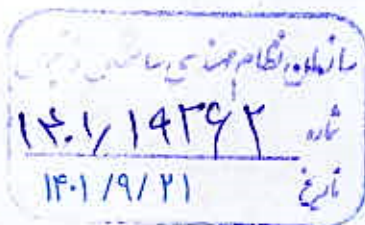 سازمان نظام مهندسی ساختمان
شماره ۱۴۰۱/۱۹۳۶۲
تاریخ ۱۴۰۱/۹/۲۱